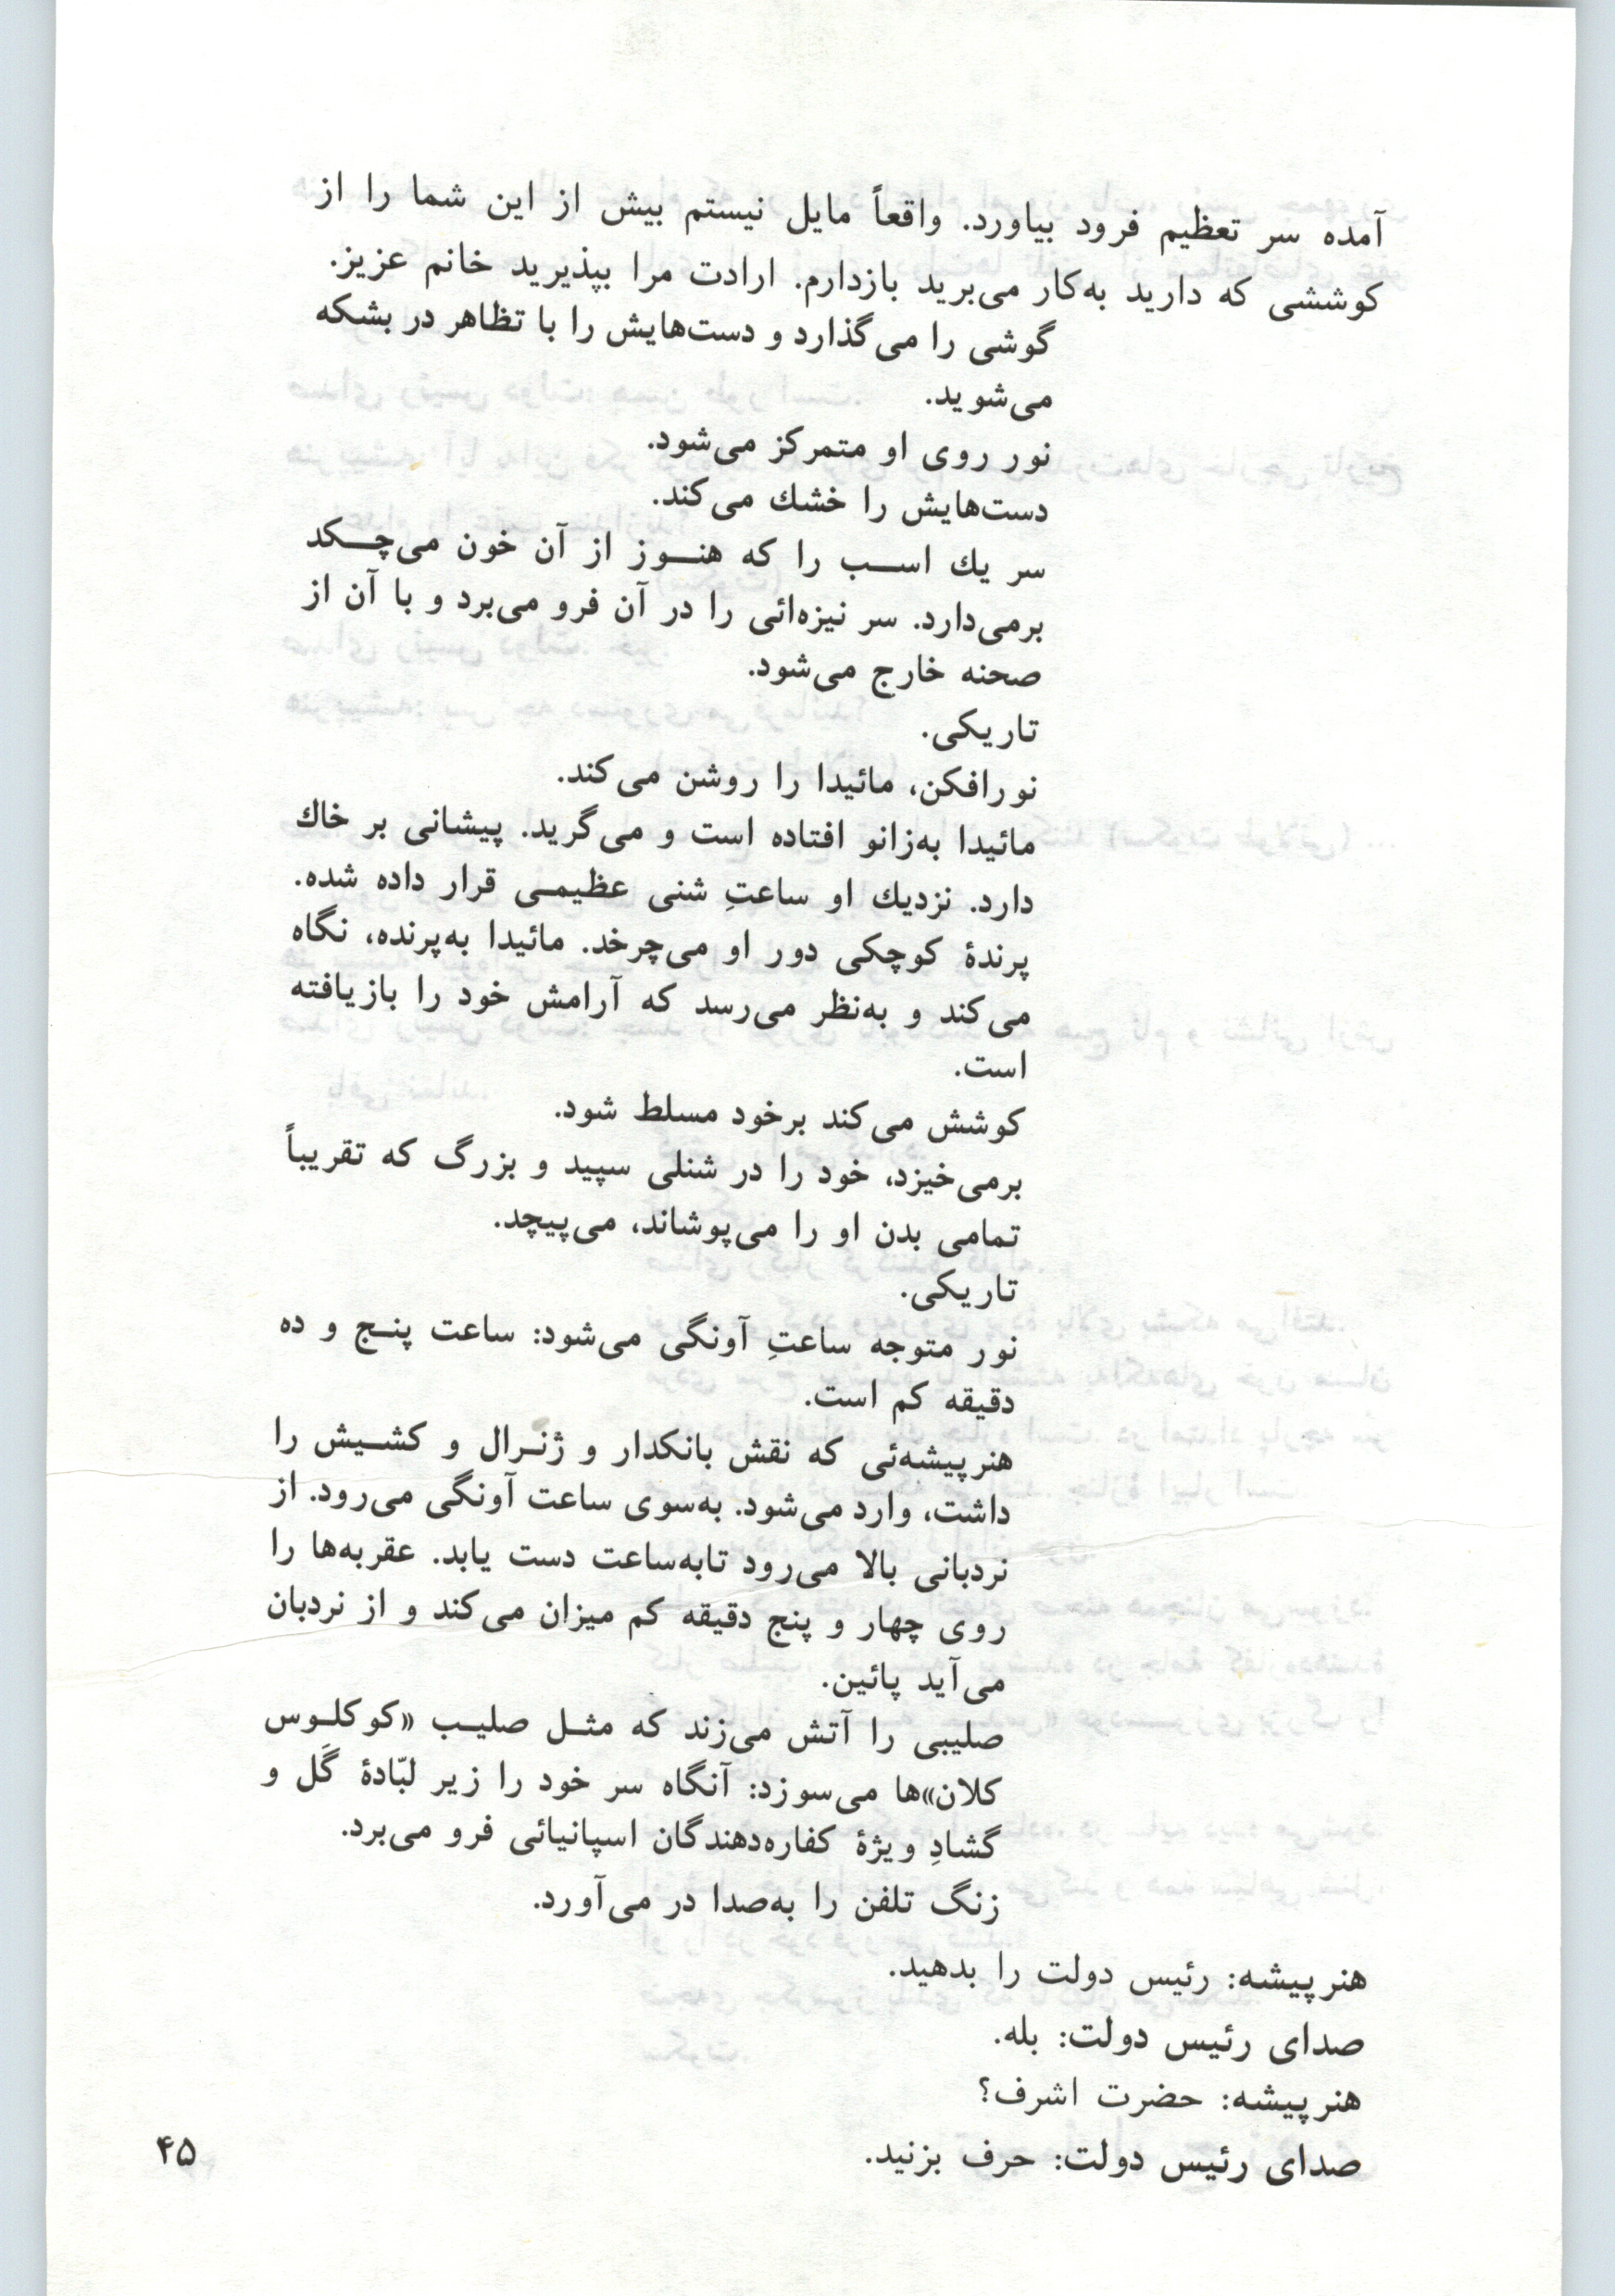 آمده سر تعظیم فرود بیاورد. واقعاً مایل نیستم بیش از این شما را از
کوششی که دارید به‌کار می‌برید بازدارم. ارادت مرا بپذیرید خانم عزیز.
گوشی را می‌گذارد و دست‌هایش را با تظاهر در بشکه
می‌شوید.
نور روی او متمرکز می‌شود.
دست‌هایش را خشك می‌کند.
سر یك اســب را که هنــوز از آن خون می‌چــکد
برمی‌دارد. سر نیزه‌ائی را در آن فرو می‌برد و با آن از
صحنه خارج می‌شود.
تاریکی.
نورافکن، مائیدا را روشن می‌کند.
مائیدا به‌زانو افتاده است و می‌گرید. پیشانی بر خاك
دارد. نزدیك او ساعتِ شنی عظیمـی قرار داده شده.
پرندهٔ کوچکی دور او می‌چرخد. مائیدا به‌پرنده، نگاه
می‌کند و به‌نظر می‌رسد که آرامش خود را بازیافته
است.
کوشش می‌کند برخود مسلط شود.
برمی‌خیزد، خود را در شنلی سپید و بزرگ که تقریباً
تمامی بدن او را می‌پوشاند، می‌پیچد.
تاریکی.
نور متوجه ساعتِ آونگی می‌شود: ساعت پنـج و ده
دقیقه کم است.
هنرپیشه‌ئی که نقش بانکدار و ژنـرال و کشـیش را
داشت، وارد می‌شود. به‌سوی ساعت آونگی می‌رود. از
نردبانی بالا می‌رود تابه‌ساعت دست یابد. عقربه‌ها را
روی چهار و پنج دقیقه کم میزان می‌کند و از نردبان
می‌آید پائین.
صلیبی را آتش می‌زند که مثـل صلیـب «کوکلـوس
کلان»ها می‌سوزد: آنگاه سر خود را زیر لبّادهٔ گَل و
گشادِ ویژهٔ کفاره‌دهندگان اسپانیائی فرو می‌برد.
زنگ تلفن را به‌صدا در می‌آورد.
هنرپیشه: رئیس دولت را بدهید.
صدای رئیس دولت: بله.
هنرپیشه: حضرت اشرف؟
صدای رئیس دولت: حرف بزنید.
۴۵